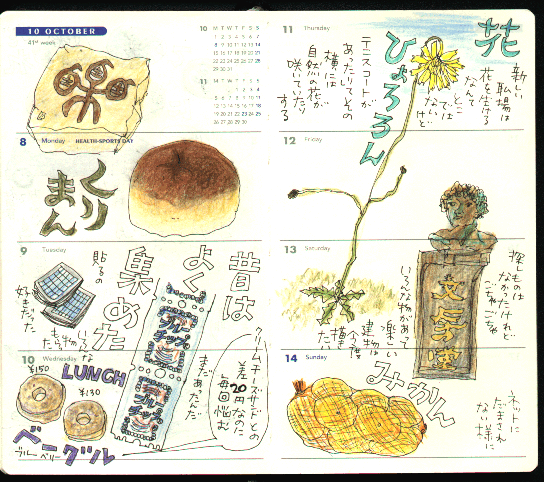 10 OCTOBER
41st week
10 M T W T F S S
1 2 3 4 5 6 7
8 9 10 11 12 13 14
15 16 17 18 19 20 21
22 23 24 25 26 27 28
29 30 31
11 M T W T F S S
1 2 3 4
5 6 7 8 9 10 11
12 13 14 15 16 17 18
19 20 21 22 23 24 25
26 27 28 29 30
8 Monday HEALTH-SPORTS DAY
くりまん
9 Tuesday
昔は
よく
集めた
貼るの
好きだった
ブルーチップ
ブルーチップ
まだあったんだ
10 Wednesday
¥150
LUNCH
¥130
ベーグル
ブルーベリー
クリームチーズサンドとの
差20円なのだ
毎回悩む
11 Thursday
花
新しい
職場は
花を生ける
ひょろろん
テニスコートが
あったりしてその
横には
自然の花が
咲いていたり
する
12 Friday
13 Saturday
探しものは
なかったけれど
ごちゃごちゃ
いろんな物があって
楽しい
建物は
今度
描きたい
14 Sunday
みかん
ネットに
だまされ
ない様に